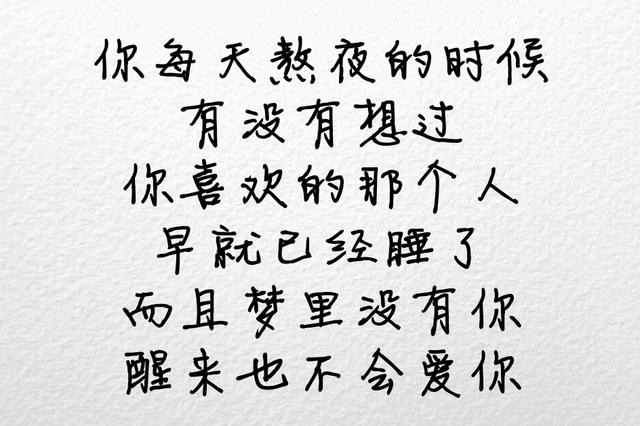 你每天熬夜的时候
有没有想过
你喜欢的那个人
早就已经睡了
而且梦里没有你
醒来也不会爱你